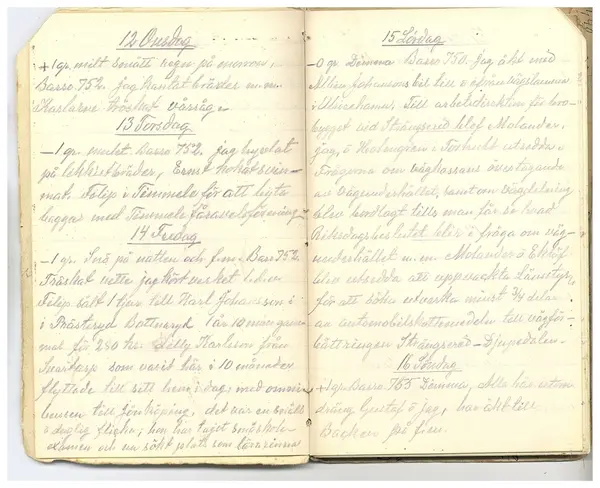 12 Onsdag
+1 gr. milt smått regn på morron,
Barro 752. jag kantat bräder m.m.
Karlarne tröskat vårsäge
13 Torsdag
-1 gr. mulet Barro 752. jag hyvlat
på lekkistbräder, Ernst
mak. Felix i Timmele för att byta
baggar med Timmele fåravelsförening
14 Fredag
-1 gr. snö på natten och fint, Barr 752
Träskat vette jag kört verket
Felix sålt 1 tjur till Karl Johansson i
i Trästeryd Bottnaryd 1 år 10 mån gam
mal för 250 kr. Karlson från
som varit här i 10 månader
flyttade till sitt hem i dag, med omni
bussen till Jönköping, det var en snäll
o daglig flicka, hon har tagit småskole
examen och nu sökt plats som lärarinna
15 Lördag
-0 gr. Dimma Barro 750. Jag åkt med
Allan Johansons bil till
i Ulricehamn, till arbetsdirektion för bro-
bygget vid Strängsered blef Molander,
jag, o Holmgren i utsedda.
Frågorna om vägkassans övertagande
av vägunderhållet, samt om vägdelning
blev bordlagt tills man får se hvad
Riksdagsbeslutet blir i fråga om väg-
underhållet m.m. Molander o Eklöf
blev utsedda att uppvackta Länsstyr
för att söka utverka minst 3/4 delar
av automobilskattemedeln till vägför-
bättringen Strängsered - Djupedalen.
16 Söndag
+1 gr. Barro 755 Dimma, Alla här utom
dräng Gustaf o jag, har åkt till
Backen på fira.